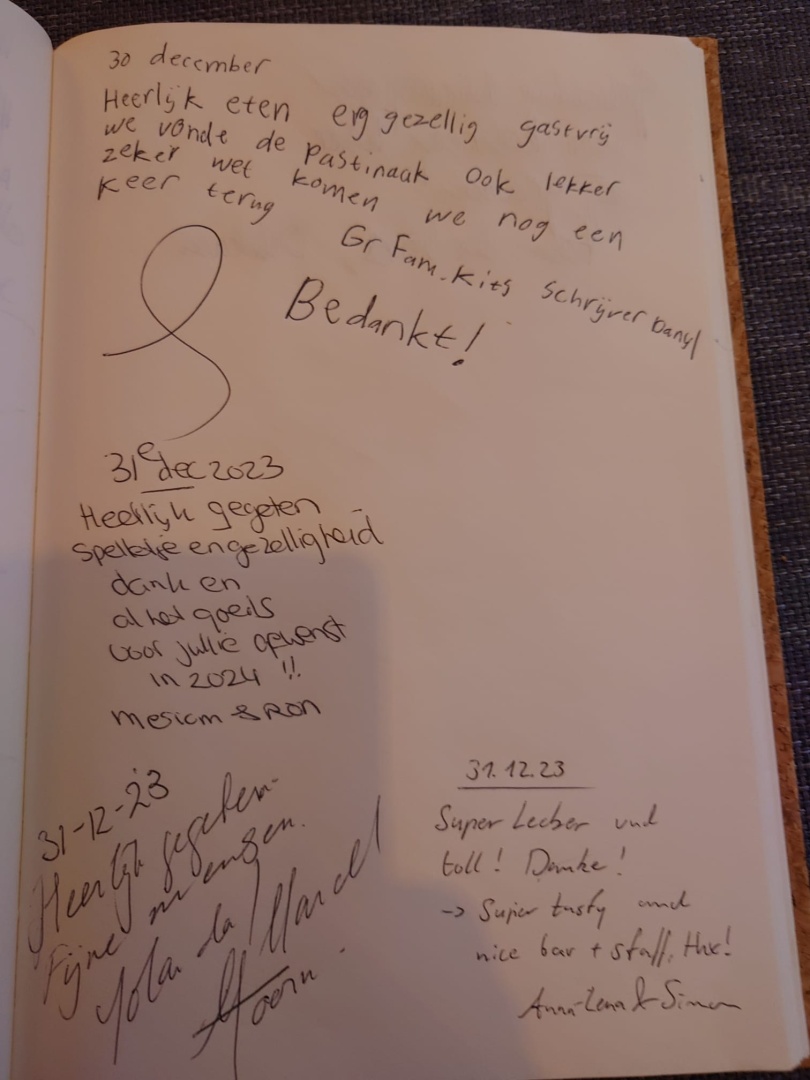 30 december
Heerlijk eten erg gezellig gastvrij
we vonde de Pastinaak ook lekker
zeker wet komen we nog een
keer terug
Gr Fam. Kits Schrijver Danyl
Bedankt!
31e dec 2023
Heerlijk gegeten
Spelletje en gezelligheid
dank en
al het goeds
voor jullie gewenst
in 2024 !!
& Ron
31-12-23
Heerlijk gegeten.
Fijne mensen.
Yolanda / Marcel
Hoorn.
31.12.23
Super Lecker und
toll! Danke!
-> Super tasty and
nice bar + staff, thx!
Anna-Lena & Simon